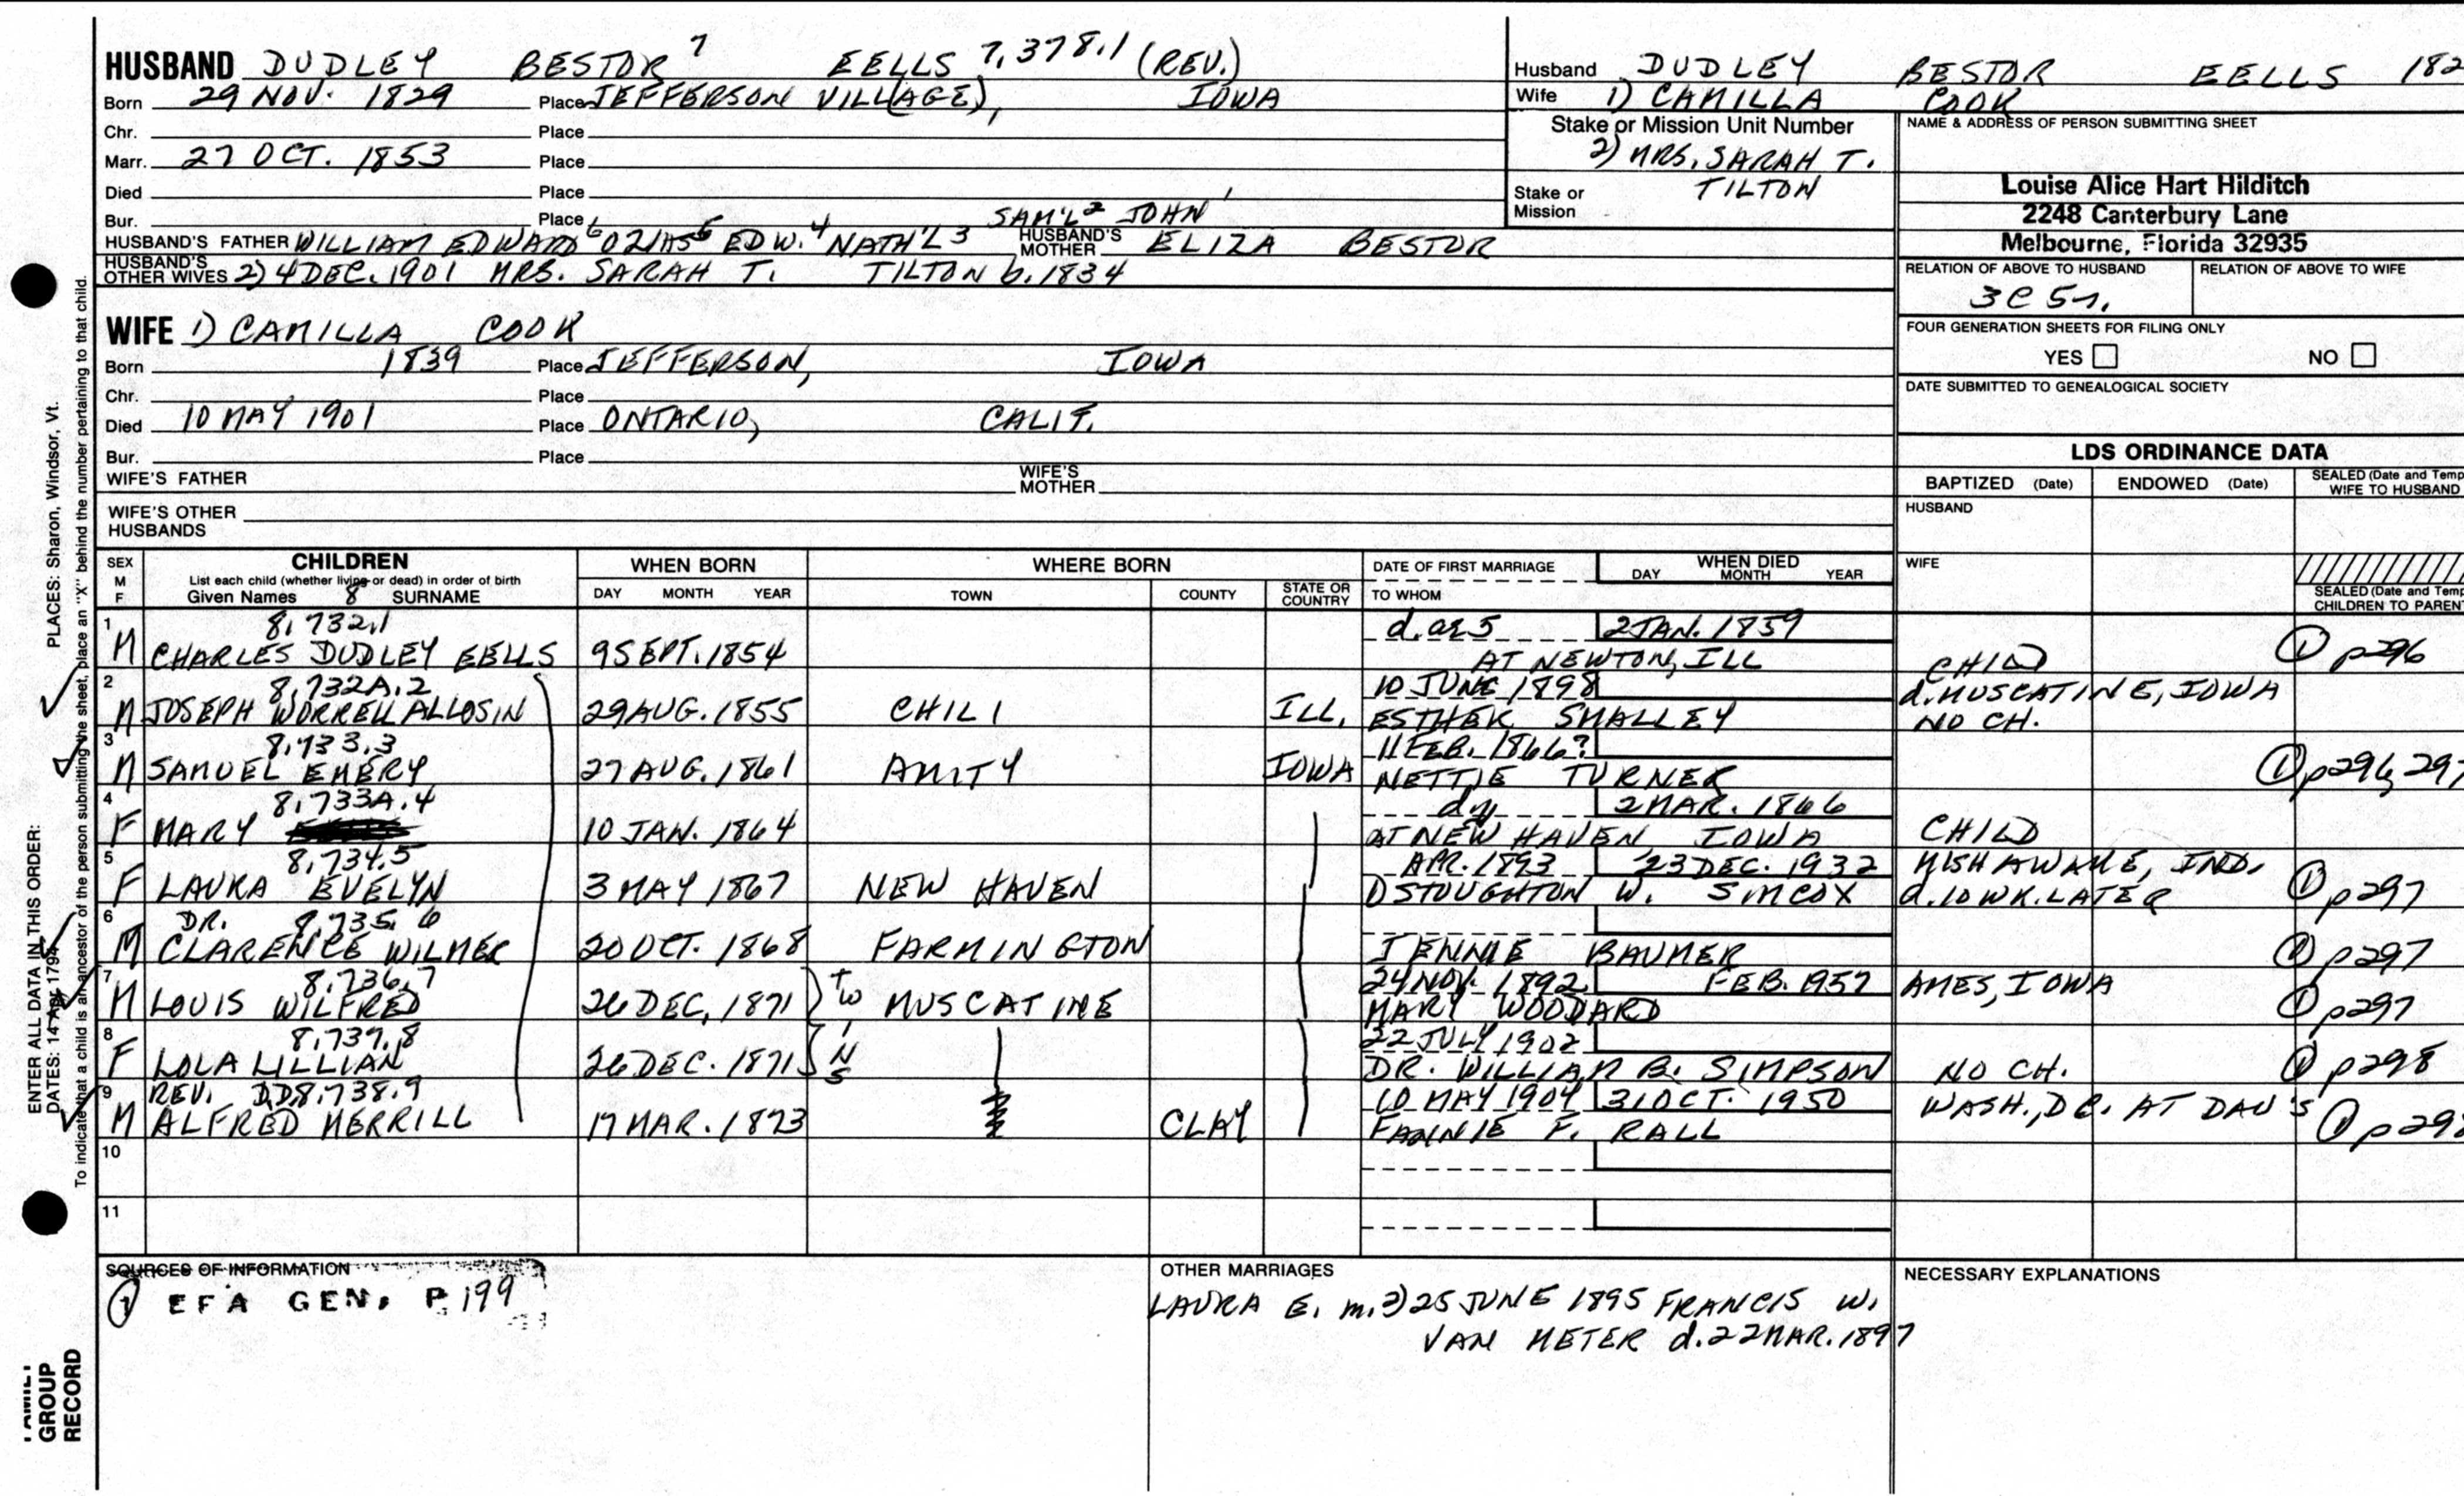 HUSBAND DUDLEY BESTOR 7 EELLS 7,378.1 (REV.)
Born 29 NOV. 1829 Place JEFFERSON VILLAGE), IOWA
Chr. Place
Marr. 27 OCT. 1853 Place
Died Place
Bur. Place SAM'L 2 JOHN 1
HUSBAND'S FATHER WILLIAM EDWARD 6 OZIAS 5 EDW. 4 NATH'L 3 HUSBAND'S MOTHER ELIZA BESTOR
HUSBAND'S OTHER WIVES 2) 4 DEC. 1901 MRS. SARAH T. TILTON b. 1834
WIFE 1) CAMILLA COOK
Born 1839 Place JEFFERSON, IOWA
Chr. Place
Died 10 MAY 1901 Place ONTARIO, CALIF.
Bur. Place
WIFE'S FATHER WIFE'S MOTHER
WIFE'S OTHER HUSBANDS
Husband DUDLEY BESTOR EELLS 182
Wife 1) CAMILLA COOK
Stake or Mission Unit Number
2) MRS. SARAH T.
TILTON
Stake or Mission
NAME & ADDRESS OF PERSON SUBMITTING SHEET
Louise Alice Hart Hilditch
2248 Canterbury Lane
Melbourne, Florida 32935
RELATION OF ABOVE TO HUSBAND RELATION OF ABOVE TO WIFE
3C 5r.
FOUR GENERATION SHEETS FOR FILING ONLY
YES NO
DATE SUBMITTED TO GENEALOGICAL SOCIETY
LDS ORDINANCE DATA
BAPTIZED (Date) ENDOWED (Date) SEALED (Date and Temp
WIFE TO HUSBAND
HUSBAND
WIFE
SEALED (Date and Temp
CHILDREN TO PARENT
SEX M F CHILDREN WHEN BORN WHERE BORN DATE OF FIRST MARRIAGE WHEN DIED
List each child (whether living or dead) in order of birth
Given Names 8 SURNAME DAY MONTH YEAR TOWN COUNTY STATE OR COUNTRY TO WHOM DAY MONTH YEAR
1 8,732.1 d. ae 5 2 JAN. 1859
M CHARLES DUDLEY EELLS 9 SEPT. 1854 AT NEWTON, ILL CHILD 1 p296
2 8,732A.2 10 JUNE 1898 d. MUSCATINE, IOWA
M JOSEPH WORRELL ALLOSIN 29 AUG. 1855 CHILI ILL. ESTHER SMALLEY NO CH.
3 8,733.3 11 FEB. 1866?
M SAMUEL EMERY 27 AUG. 1861 AMITY IOWA NETTIE TURNER 1 p296, 297
4 8,733A.4 dy 2 MAR. 1866
F MARY 10 JAN. 1864 AT NEW HAVEN IOWA CHILD
5 8,734.5 APR. 1893 23 DEC. 1932 MISHAWAKE, IND.
F LAURA EVELYN 3 MAY 1867 NEW HAVEN D STOUGHTON W. SIMCOX d. 10 WK. LATER 1 p297
6 DR. 8,735.6
M CLARENCE WILMER 20 OCT. 1868 FARMINGTON JENNIE BAUMER 1 p297
7 8,736.7 24 NOV. 1892 FEB. 1957 AMES, IOWA
M LOUIS WILFRED 26 DEC. 1871 TWINS MUSCATINE MARY WOODARD 1 p297
8 8,737.8 22 JULY 1902
F LOLA LILLIAN 26 DEC. 1871 DR. WILLIAM B. SIMPSON NO CH. 1 p298
9 REV. DD 8,738.9 10 MAY 1904 31 OCT. 1950 WASH., DC. AT DAU'S
M ALFRED MERRILL 17 MAR. 1873 CLAY FANNIE F. RALL 1 p298
10
11
SOURCES OF INFORMATION
1 EFA GEN. P. 199
OTHER MARRIAGES
LAURA E. m. 2) 25 JUNE 1895 FRANCIS W.
VAN METER d. 22 MAR. 1897
NECESSARY EXPLANATIONS
ENTER ALL DATA IN THIS ORDER: PLACES: Sharon, Windsor, Vt.
DATES: 14 Apr 1794
To indicate that a child is an ancestor of the person submitting the sheet, place an "X" behind the number pertaining to that child.
FAMILY
GROUP
RECORD